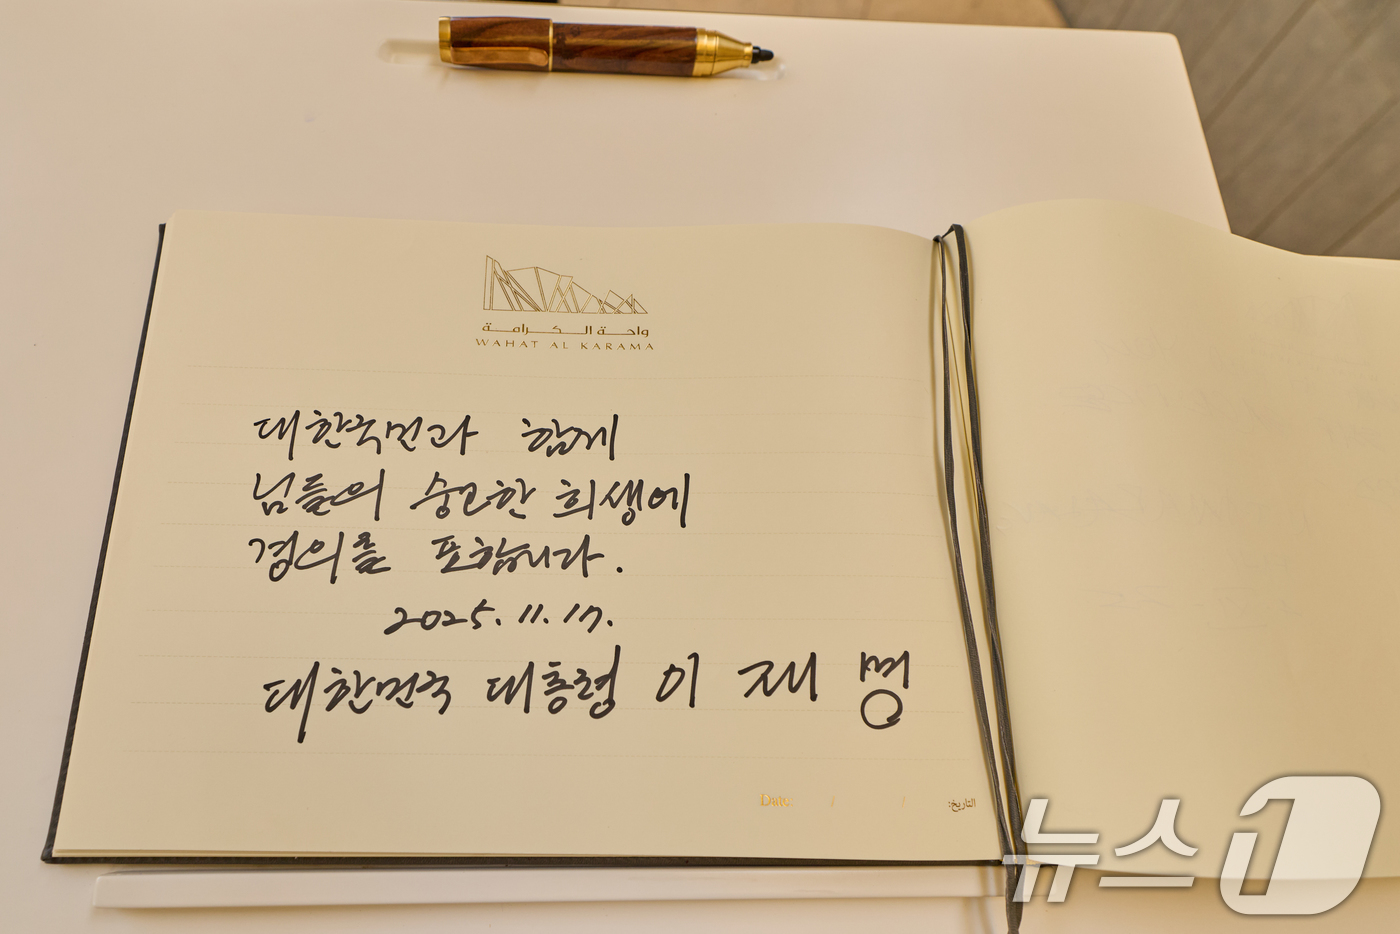 واحة الكرامة
WAHAT AL KARAMA
대한국민과 함께
님들의 숭고한 희생에
경의를 표합니다.
2025. 11. 17.
대한민국 대통령 이 재 명
Date: / / التاريخ:
뉴스1